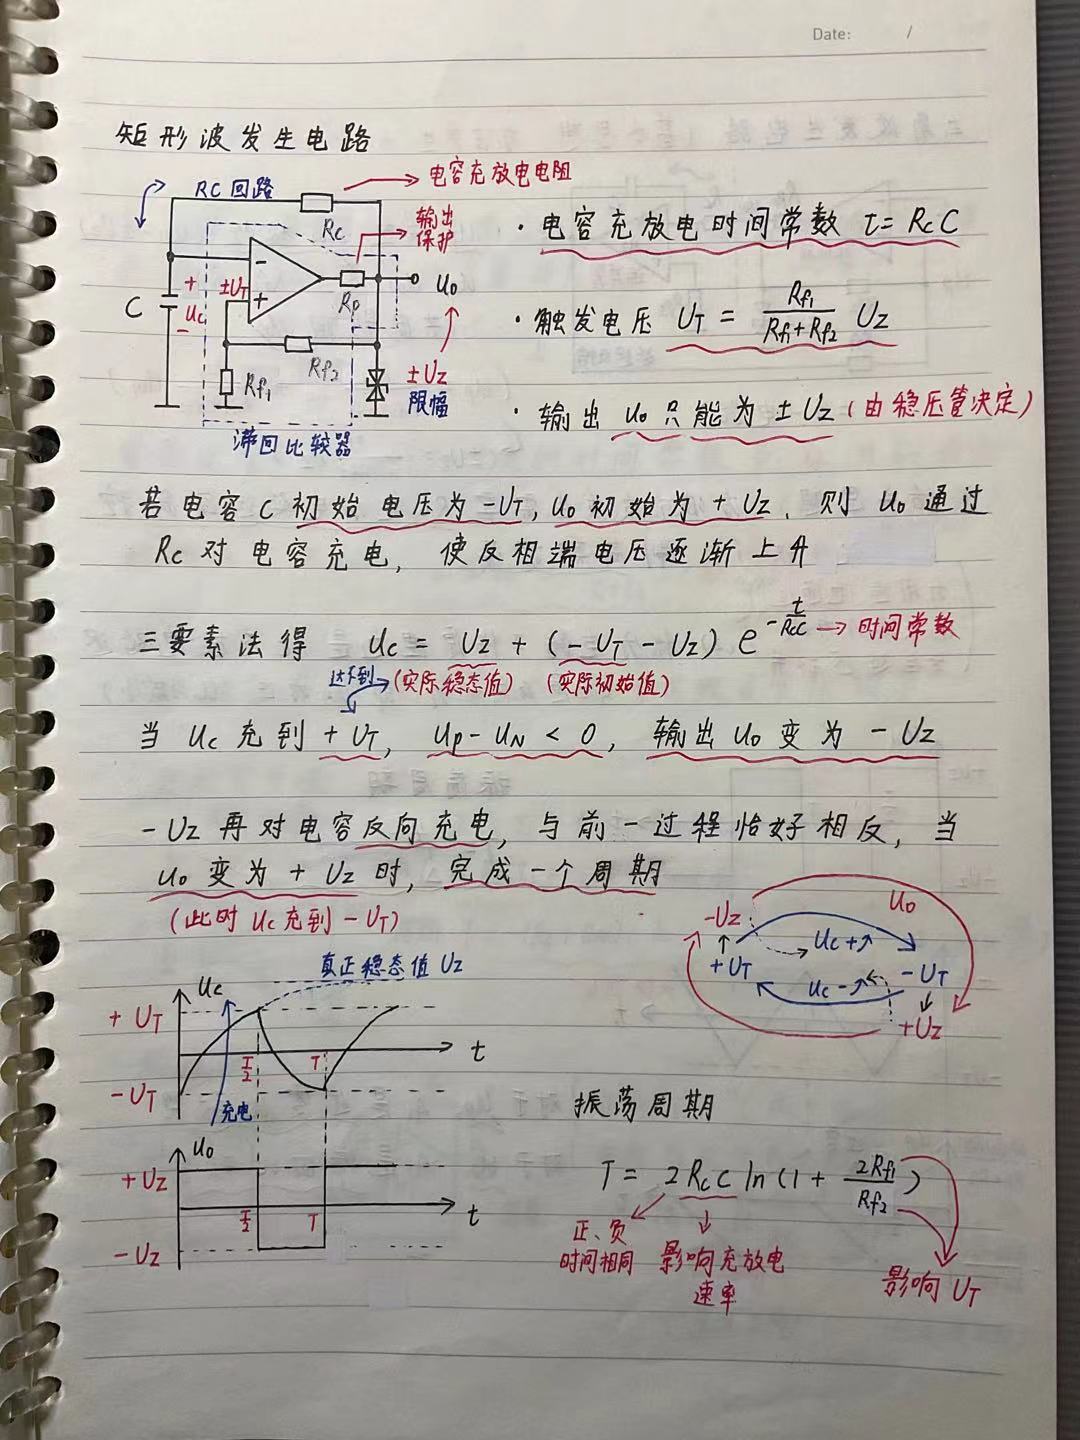 Date: /
矩形波发生电路
RC回路
电容充放电电阻
Rc
输出
保护
±UT
Rp
uo
C
+
uc
−
Rf1
Rf2
±Uz
限幅
滞回比较器
· 电容充放电时间常数 t = RcC
· 触发电压 UT = Rf1/(Rf1+Rf2) Uz
· 输出 uo 只能为 ±Uz (由稳压管决定)
若电容C初始电压为-UT, uo初始为+Uz, 则 uo 通过
Rc对电容充电, 使反相端电压逐渐上升
三要素法得 uc = Uz + (-UT - Uz) e^(-t/RcC) → 时间常数
达不到 (实际稳态值) (实际初始值)
当 uc 充到 +UT, up-uN < 0, 输出 uo 变为 -Uz
-Uz 再对电容反向充电, 与前一过程恰好相反, 当
uo 变为 +Uz 时, 完成一个周期
(此时 uc 充到 -UT)
uo
-Uz
↑
+UT
uc+↗
uc-↗
-UT
↓
+Uz
真正稳态值 Uz
uc
+UT
T/2
T
t
-UT
充电
uo
+Uz
T/2
T
t
-Uz
振荡周期
T = 2RcC ln(1 + 2Rf1/Rf2)
正、负
时间相同
影响充放电
速率
影响 UT